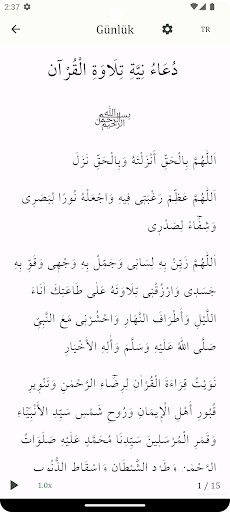 2:37
Günlük
TR
دُعَاءُ نِيَّةِ تِلَاوَةِ الْقُرْآن
﷽
اَللّٰهُمَّ بِالْحَقِّ اَنْزَلْتَهُ وَبِالْحَقِّ نَزَلَ
اَللّٰهُمَّ عَظِّمْ رَغْبَتِى فِيهِ وَاجْعَلْهُ نُورًا لِبَصَرِى
وَشِفَٓاءً لِصَدْرِى
اَللّٰهُمَّ زَيِّنْ بِهِ لِسَانِى وَجَمِّلْ بِهِ وَجْهِى وَقَوِّ بِهِ
جَسَدِى وَارْزُقْنِى تِلَاوَتَهُ عَلٰى طَاعَتِكَ اٰنَاءَ
اللَّيْلِ وَأَطْرَافَ النَّهَارِ وَاحْشُرْنِى مَعَ النَّبِيِّ
صَلَّى اللهُ عَلَيْهِ وَسَلَّمَ وَاٰلِهِ الْأَخْيَارِ
نَوَيْتُ قِرَاءَةَ الْقُرْاٰنِ لِرِضَٓاءِ الرَّحْمٰنِ وَتَنْوِيرِ
قُبُورِ أَهْلِ الْإِيمَانِ وَرُوحِ شَمْسِ سَيِّدِ الْأَنْبِيَٓاءِ
وَقَمَرِ الْمُرْسَلِينَ سَيِّدِنَا مُحَمَّدٍ عَلَيْهِ صَلَوَاتُ
الرَّحْمٰنِ وَطَرْدِ الشَّيْطَانِ وَاِسْقَاطِ الذُّنُوبِ
1.0x
1 / 15